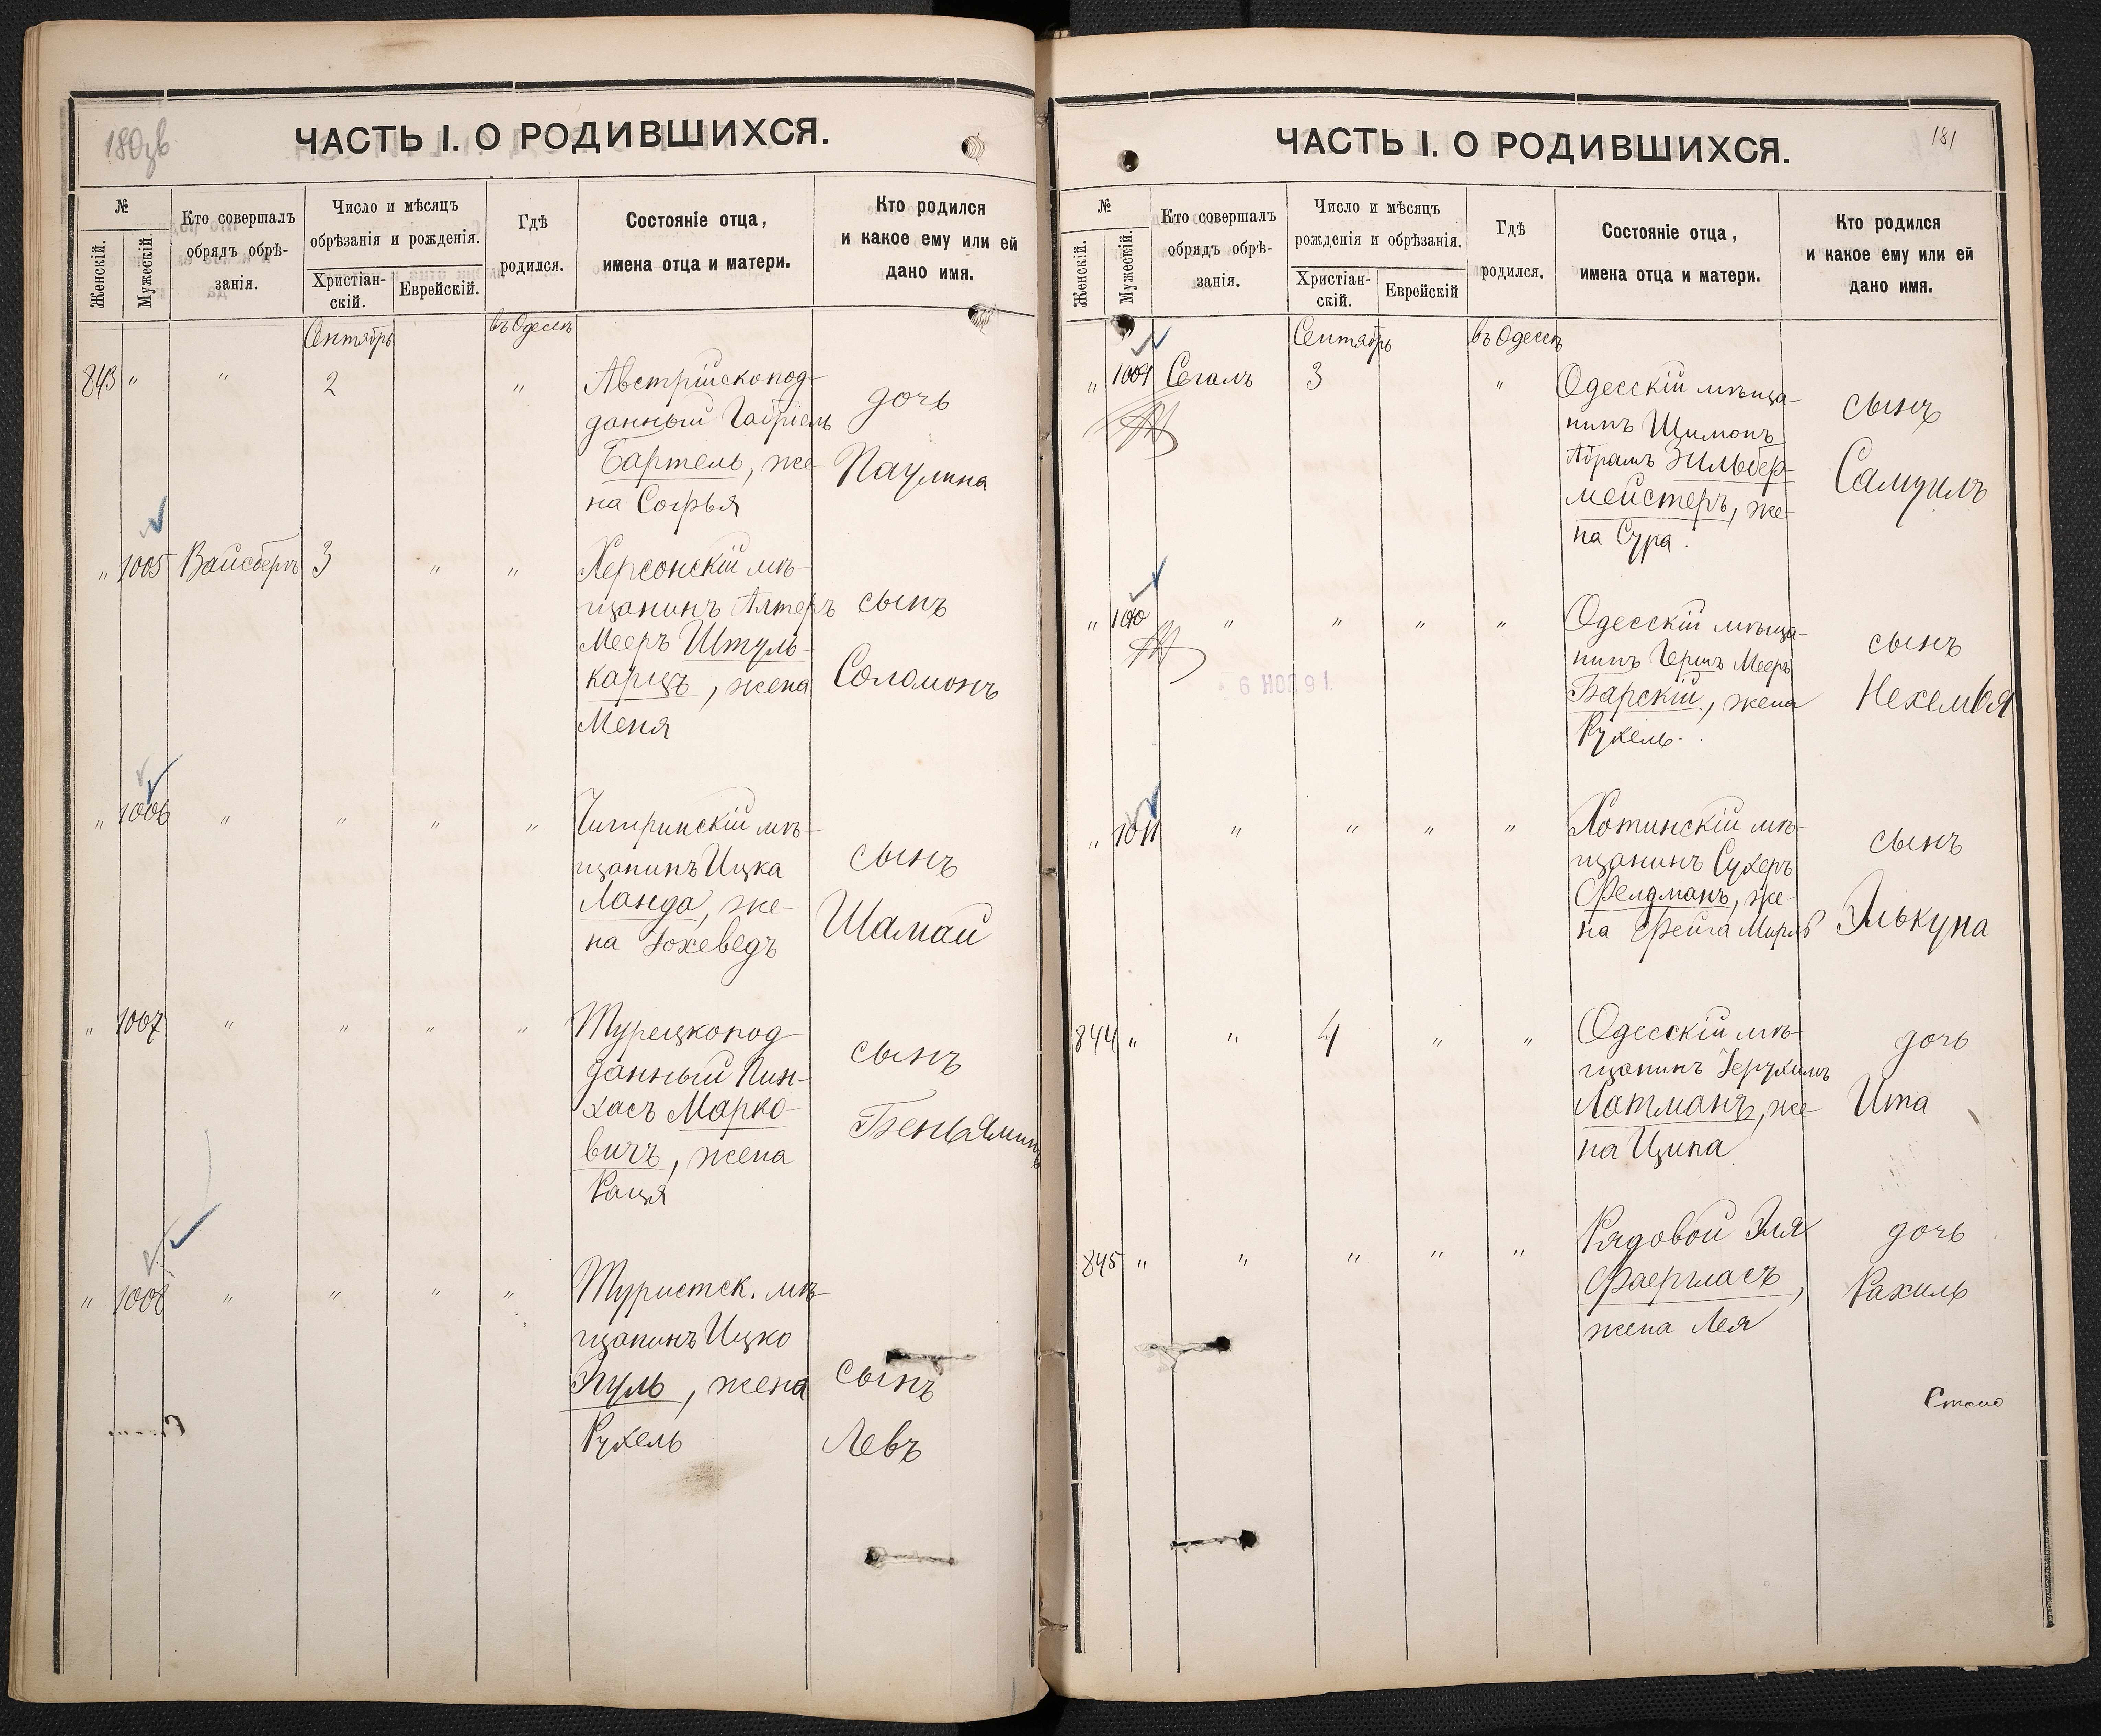 180зв
ЧАСТЬ I. О РОДИВШИХСЯ.
№
Женскій.
Мужескій.
Кто совершалъ
обрядъ обрѣ-
занія.
Число и мѣсяцъ
обрѣзанія и рожденія.
Христіан-
скій.
Еврейскій.
Гдѣ
родился.
Состояніе отца,
имена отца и матери.
Кто родился
и какое ему или ей
дано имя.
Сентябрь
въ Одессѣ
843 " " 2 "
Австрійскопод-
данный Габріель
Бартель, же-
на Софья
дочь
Паулина
" 1005 Вайсбергъ 3 " "
Херсонскій мѣ-
щанинъ Алтеръ
Мееръ Штуль-
карцъ, жена
Меня
сынъ
Соломонъ
" 1006 " " " "
Чигиринскій мѣ-
щанинъ Ицка
Ланда, же-
на Іохеведъ
сынъ
Шамай
" 1007 " " " "
Турецкопод
данный Пин-
хасъ Марко-
вичъ, жена
Раця
сынъ
Беньяминъ
" 1008 " " " "
Туристск. мѣ-
щанинъ Ицко
Эгуль, жена
Рухель
сынъ
Левъ
181
ЧАСТЬ I. О РОДИВШИХСЯ.
№
Женскій.
Мужескій.
Кто совершалъ
обрядъ обрѣ-
занія.
Число и мѣсяцъ
рожденія и обрѣзанія.
Христіан-
скій.
Еврейскій
Гдѣ
родился.
Состояніе отца,
имена отца и матери.
Кто родился
и какое ему или ей
дано имя.
Сентябрь
въ Одессѣ
" 1009 Сегалъ 3 "
Одесскій мѣща-
нинъ Шимонъ
Абрамъ Зильбер-
мейстеръ, же-
на Сура.
сынъ
Самуилъ
" 1010 " " " "
6 НОЯ 91.
Одесскій мѣща-
нинъ Гершъ Мееръ
Барскій, жена
Рухель.
сынъ
Нехемья
" 1011 " " " "
Хотинскій мѣ-
щанинъ Сухеръ
Фелдманъ, же-
на Фейга Мирля
сынъ
Элькуна
844 " " 4 " "
Одесскій мѣ-
щанинъ Іерухимъ
Лотманъ, же-
на Ципа
дочь
Ита
845 " " " " "
Рядовой Эля
Фаергласъ,
жена Лея
дочь
Рахиль